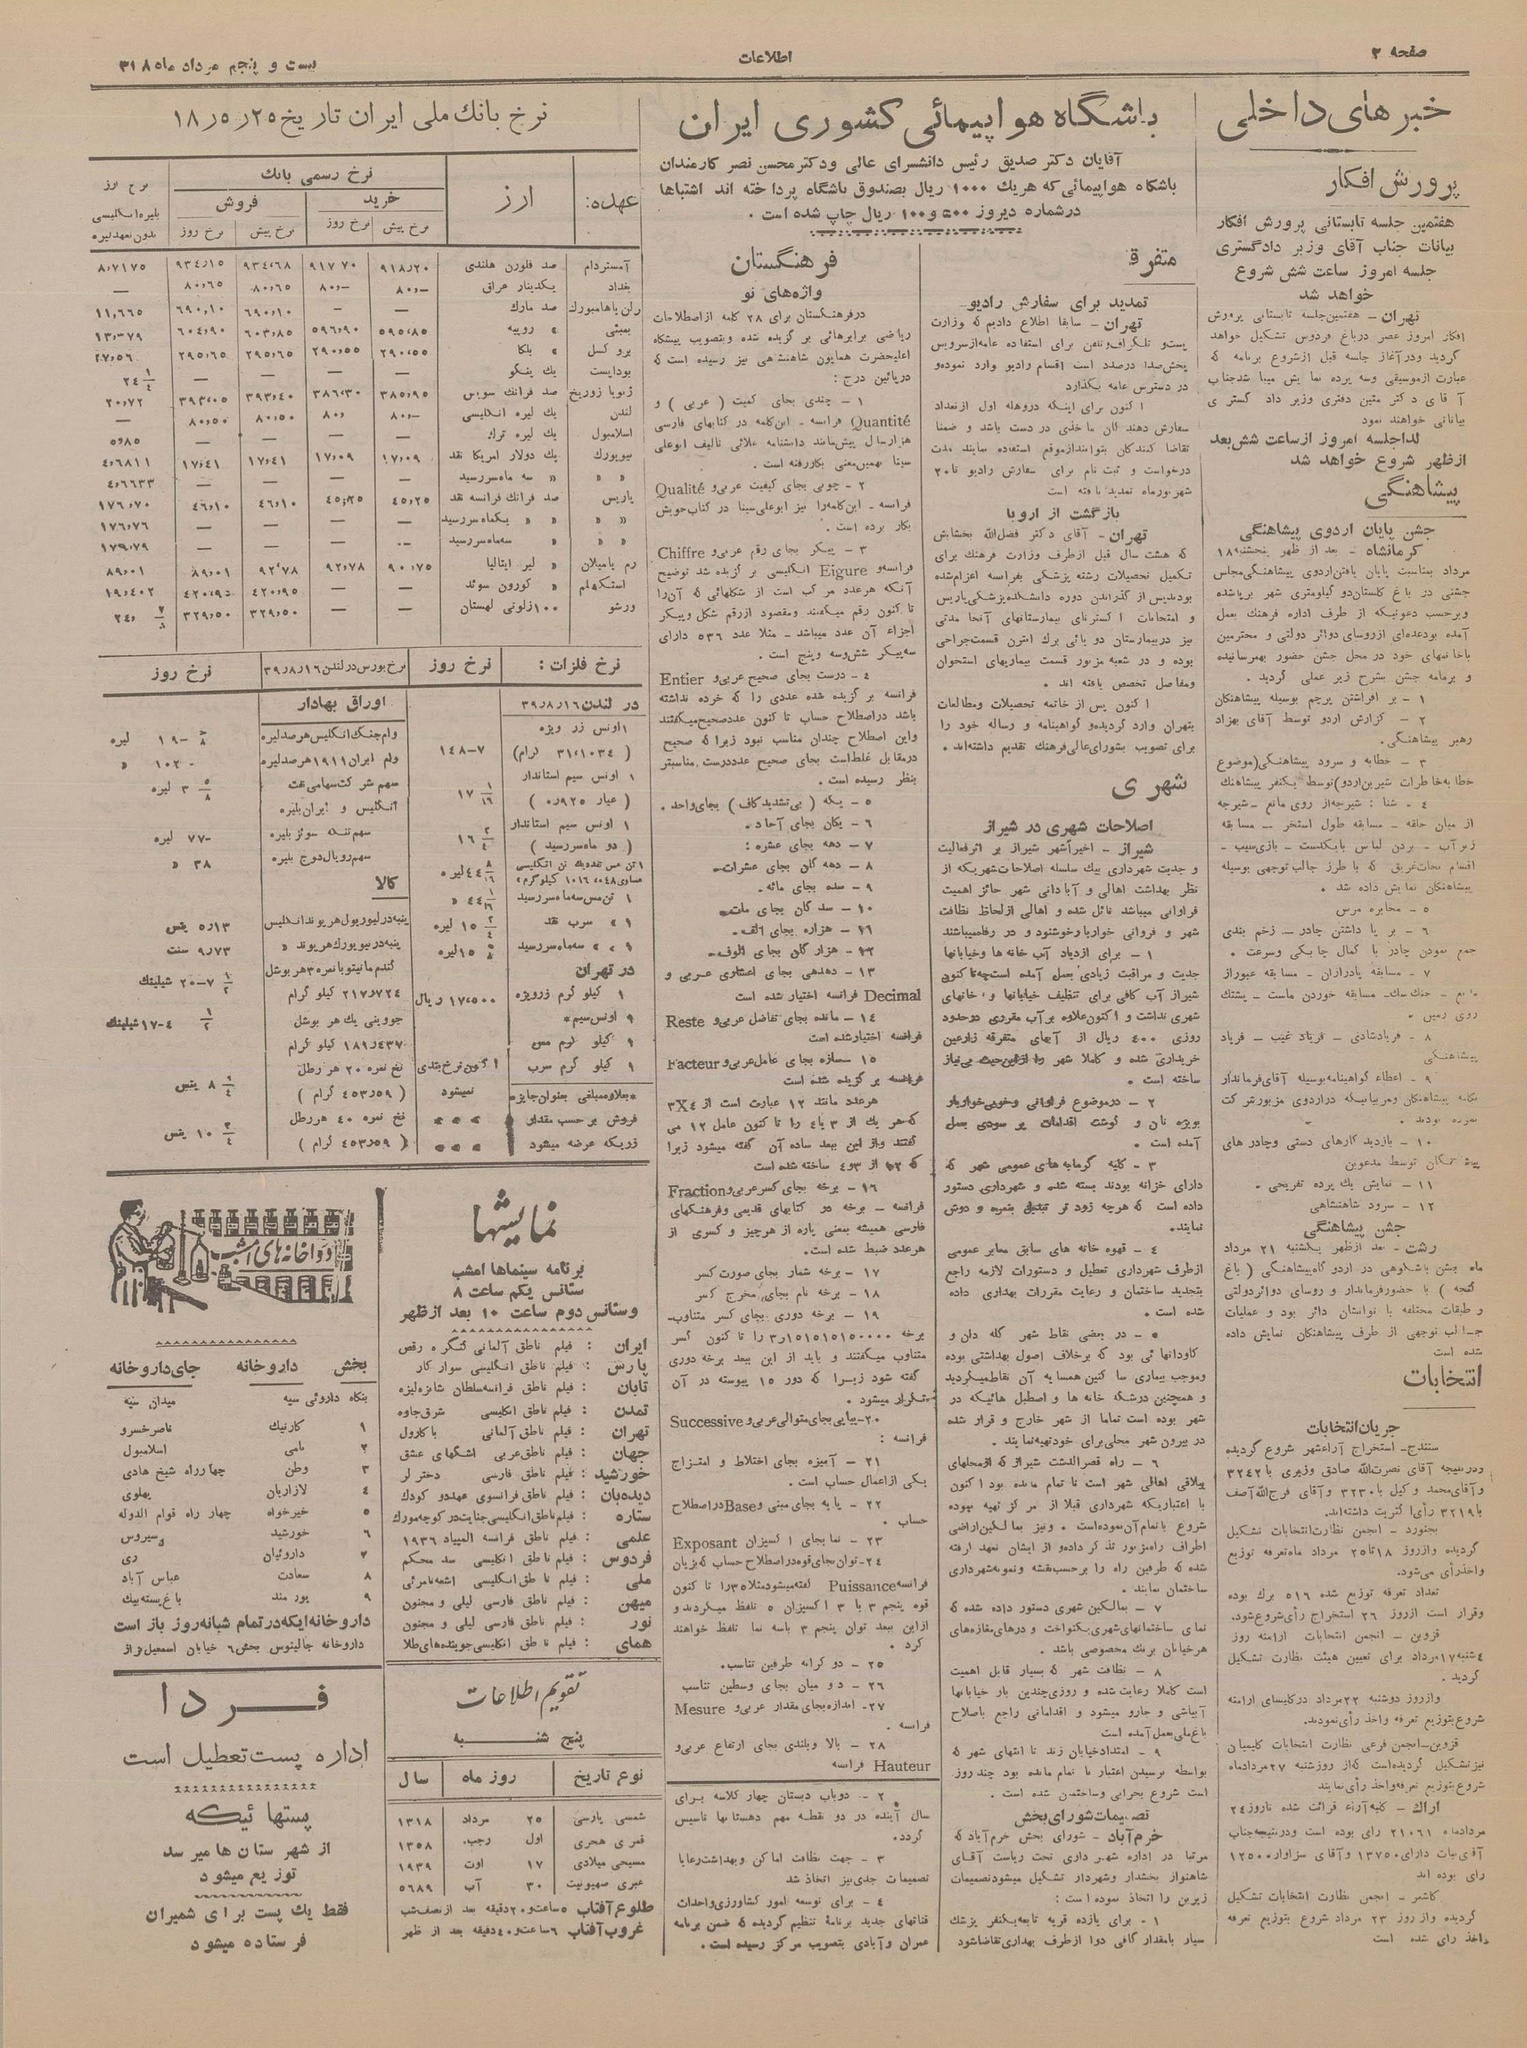 صفحه ۲
اطلاعات
بیست و پنجم مرداد ماه ۳۱۸
خبرهای داخلی
پرورش افکار
هفتمین جلسه تابستانی پرورش افکار
بیانات جناب آقای وزیر دادگستری
جلسه امروز ساعت شش شروع
خواهد شد
تهران – هفتمین جلسه تابستانی پرورش
افکار امروز عصر در باغ فردوس تشکیل خواهد
گردید و در آغاز جلسه قبل از شروع برنامه که
عبارت از موسیقی و سه پرده نمایش میباشد جناب
آقای دکتر متین دفتری وزیر دادگستری
بیاناتی خواهند نمود
لذا جلسه امروز از ساعت شش بعد
از ظهر شروع خواهد شد
پیشاهنگی
جشن پایان اردوی پیشاهنگی
کرمانشاه – بعد از ظهر پنجشنبه ۱۸
مرداد بمناسبت پایان یافتن اردوی پیشاهنگی مجلس
جشنی در باغ گلستان دو کیلومتری شهر برپا شده
و برحسب دعوتیکه از طرف اداره فرهنگ بعمل
آمده بود عده‌ای از روسای دوائر دولتی و محترمین
با خانمهای خود در محل جشن حضور بهمرسانیده
و برنامه جشن بشرح زیر عملی گردید .
۱ – بر افراشتن پرچم بوسیله پیشاهنگان
۲ – گزارش اردو توسط آقای بهزاد
رهبر پیشاهنگی .
۳ – خطابه و سرود پیشاهنگی (موضوع
خطابه خاطرات شیرین اردو) توسط یکنفر پیشاهنگ
۴ – شنا : شیرجه از روی مانع – شیرجه
از میان حلقه – مسابقه طول استخر – مسابقه
زیر آب – بردن لباس با یکدست – بازی سیب –
اقسام نجات غریق که با طرز جالب توجهی بوسیله
پیشاهنگان نمایش داده شد .
۵ – مخابره مرس
۶ – بر پا داشتن چادر – زخم بندی
جمع نمودن چادر با کمال چابکی و سرعت .
۷ – مسابقه پادرازان – مسابقه عبور از
مسابقه خوردن ماست – پشتک
روی زمین .
۸ – فریاد شادی – فریاد غیب – فریاد
پیشاهنگی
۹ – اعطاء گواهینامه بوسیله آقای فرماندار
پیشاهنگان و مربیانیکه در اردوی مزبور شرکت
۱۰ – بازدید کارهای دستی و چادر های
توسط مدعوین
۱۱ – نمایش یک پرده تفریحی .
۱۲ – سرود شاهنشاهی
جشن پیشاهنگی
رشت – بعد از ظهر یکشنبه ۲۱ مرداد
ماه جشن باشکوهی در اردو گاه پیشاهنگی ( باغ
) با حضور فرماندار و روسای دوائر دولتی
و طبقات مختلفه با نواستان دائر بود و عملیات
جالب توجهی از طرف پیشاهنگان نمایش داده
شده است
انتخابات
جریان انتخابات
سنندج – استخراج آراء شهر شروع گردیده
و در نتیجه آقای نصرت‌الله صادق وزیری با ۳۲۴۲
و آقای محمد وکیل با ۳۲۳۰ و آقای فرج‌الله آصف
با ۳۲۱۹ رأی اکثریت داشته‌اند.
بجنورد – انجمن نظارت انتخابات تشکیل
گردیده و از روز ۱۸ تا ۲۵ مرداد ماه تعرفه توزیع
و اخذ رأی می‌شود.
تعداد تعرفه توزیع شده ۵۱۶ برگ بوده
و قرار است از روز ۲۶ استخراج رأی شروع شود.
قزوین – انجمن انتخابات ارامنه روز
۴ شنبه ۱۷ مرداد برای تعیین هیئت نظارت تشکیل
گردید .
و از روز دوشنبه ۲۲ مرداد در کلیسای ارامنه
شروع بتوزیع تعرفه و اخذ رأی نمودند.
قزوین – انجمن فرعی نظارت انتخابات کلیمیان
نیز تشکیل گردیده است که از روز شنبه ۲۷ مرداد ماه
شروع بتوزیع تعرفه و اخذ رأی نمایند
اراک – کلیه آراء قرائت شده تا روز ۲۴
مرداد ماه ۲۱۰۶۱ رای بوده است و در نتیجه جناب
آقای بیات دارای ۱۳۷۵۰ و آقای سزاوار ۱۲۵۰۰
رای بوده اند
کاشمر – انجمن نظارت انتخابات تشکیل
گردیده و از روز ۲۳ مرداد شروع بتوزیع تعرفه
و اخذ رای شده است
باشگاه هواپیمائی کشوری ایران
آقایان دکتر صدیق رئیس دانشسرای عالی و دکتر محسن نصر کارمندان
باشگاه هواپیمائی که هریک ۱۰۰۰ ریال بصندوق باشگاه پرداخته اند اشتباها
در شماره دیروز ۵۰۰ و ۱۰۰ ریال چاپ شده است .
متفرقه
تمدید برای سفارش رادیو
تهران – سابقا اطلاع دادیم که وزارت
پست و تلگراف و تلفن برای استفاده عامه از سرویس
پخش صدا درصدد است اقسام رادیو وارد نموده و
در دسترس عامه بگذارد
اکنون برای اینکه در وهله اول از تعداد
سفارش دهندگان ماخذی در دست باشد و ضمنا
تقاضا کنندگان بتوانند از موقع استفاده نمایند مدت
درخواست و ثبت نام برای سفارش رادیو تا ۲۰
شهریور ماه تمدید یافته است
بازگشت از اروپا
تهران – آقای دکتر فضل‌الله بخشایش
که هشت سال قبل از طرف وزارت فرهنگ برای
تکمیل تحصیلات رشته پزشکی بفرانسه اعزام شده
بودند پس از گذراندن دوره دانشکده پزشکی پاریس
و امتحانات اکسترنای بیمارستانهای آنجا مدتی
نیز در بیمارستان دو بائی برک انترن قسمت جراحی
بوده و در شعبه مزبور قسمت بیماریهای استخوان
و مفاصل تخصص یافته اند .
اکنون پس از خاتمه تحصیلات و مطالعات
بتهران وارد گردیده و گواهینامه و رساله خود را
برای تصویب بشورای عالی فرهنگ تقدیم داشته‌اند .
شهری
اصلاحات شهری در شیراز
شیراز – اخیراً شهر شیراز بر اثر فعالیت
و جدیت شهرداری بیک سلسله اصلاحات شهریکه از
نظر بهداشت اهالی و آبادانی شهر حائز اهمیت
فراوانی میباشد نائل شده و اهالی از لحاظ نظافت
شهر و فروانی خواربار خوشنود و در رفاه میباشند
۱ – برای ازدیاد آب خانه ها و خیابانها
جدیت و مراقبت زیادی بعمل آمده است چه تا کنون
شیراز آب کافی برای تنظیف خیابانها و خانهای
شهری نداشت و اکنون علاوه بر آب مقرری در حدود
روزی ۴۰۰ ریال از آبهای متفرقه زارعین
خریداری شده و کاملا شهر را از این حیث بی نیاز
ساخته است .
۲ – در موضوع فراوانی و خوبی خواربار
بویژه نان و گوشت اقدامات پر سودی بعمل
آمده است .
۳ – کلیه گرمابه های عمومی شهر که
دارای خزانه بودند بسته شده و شهرداری دستور
داده است که هرچه زود تر تبدیل بنمره و دوش
نمایند.
۴ – قهوه خانه های سابق معابر عمومی
از طرف شهرداری تعطیل و دستورات لازمه راجع
بتجدید ساختمان و رعایت مقررات بهداری داده
شده است .
۵ – در بعضی نقاط شهر گله دان و
گاودانهائی بود که برخلاف اصول بهداشتی بوده
و موجب بیماری ساکنین همسایه آن نقاط میگردید
و همچنین درشگه خانه ها و اصطبل هائیکه در
شهر بوده است تماما از شهر خارج و قرار شده
در بیرون شهر محلی برای خود تهیه نمایند .
۶ – راه قصرالدشت شیراز که از محلهای
ییلاقی اهالی شهر است ناتمام مانده بود اکنون
با اعتباریکه شهرداری قبلا از مرکز تهیه نموده
شروع باتمام آن نموده است . و نیز بمالکین اراضی
اطراف راه مزبور تذکر داده و از ایشان تعهد گرفته
شده که طرفین راه را برحسب نقشه و نمونه شهرداری
ساختمان نمایند .
۷ – بمالکین شهری دستور داده شده که
نمای ساختمانهای شهری یکنواخت و درهای مغازه‌های
هر خیابان برنگ مخصوصی باشد .
۸ – نظافت شهر که بسیار قابل اهمیت
است کاملا رعایت شده و روزی چندین بار خیابانها
آبپاشی و جارو میشود و اقداماتی راجع باصلاح
باغ ملی بعمل آمده است
۹ – امتداد خیابان زند تا انتهای شهر که
بواسطه نرسیدن اعتبار ناتمام مانده بود چند روز
است شروع ساختمان شده است .
تصمیمات شورای بخش
خرم‌آباد – شورای بخش خرم‌آباد که
مرتبا در اداره شهرداری تحت ریاست آقای
شاهنواز بخشدار و شهردار تشکیل میشود تصمیمات
زیرین را اتخاذ نموده است :
۱ – برای یازده قریه تابعه یکنفر پزشک
سیار با مقدار کافی دوا از طرف بهداری تقاضا شود
فرهنگستان
واژه‌های نو
در فرهنگستان برای ۲۸ کلمه از اصطلاحات
ریاضی برابرهائی برگزیده شده و بتصویب پیشگاه
اعلیحضرت همایون شاهنشهی نیز رسیده است که
در پائین درج :
۱ – چندی بجای کمیت ( عربی ) و
Quantité فرانسه – این کلمه در کتابهای فارسی
هزار سال پیش مانند دانشنامه علائی تالیف ابوعلی
سینا بهمین معنی بکار رفته است .
۲ – چونی بجای کیفیت عربی و Qualité
فرانسه . این کلمه را نیز ابوعلی سینا در کتاب خویش
بکار برده است .
۳ – پیکر بجای رقم عربی و Chiffre
فرانسه و Eigure انگلیسی برگزیده شد توضیح
آنکه هر عدد مرکب است از شکلهائی که آن را
تا کنون رقم میگفتند و مقصود از رقم شکل و پیکر
اجزاء آن عدد میباشد – مثلا عدد ۵۳۶ دارای
سه پیکر شش و سه و پنج است .
۴ – درست بجای صحیح عربی و Entier
فرانسه برگزیده شده عددی را که خرده نداشته
باشد در اصطلاح حساب تا کنون عدد صحیح میگفتند
و این اصطلاح چندان مناسب نبود زیرا که صحیح
در مقابل غلط است بجای صحیح عدد درست مناسبتر
بنظر رسیده است .
۵ – یکه ( بی تشدید کاف ) بجای واحد .
۶ – یکان بجای آحاد .
۷ – دهه بجای عشره :
۸ – دهه گان بجای عشرات –
۹ – سده بجای مائه .
۱۰ – سدگان بجای مآت –
۱۱ – هزاره بجای الف –
۱۲ – هزار گان بجای الوف –
۱۳ – دهدهی بجای اعشاری عربی و
Decimal فرانسه اختیار شده است
۱۴ – مانده بجای تفاضل عربی و Reste
فرانسه اختیار شده است
۱۵ – سازه بجای عامل عربی و Facteur
فرانسه برگزیده شده است
هر عدد مانند ۱۲ عبارت است از ۳X۴
که هر یک از ۳ یا ۴ را تا کنون عامل ۱۲ می
گفتند و از این ببعد ساده آن گفته میشود زیرا
که ۱۲ از ۳ و ۴ ساخته شده است
۱۶ – برخه بجای کسر عربی و Fraction
فرانسه – برخه در کتابهای قدیمی و فرهنگهای
فارسی همیشه بمعنی پاره از هر چیز و کسری از
هر عدد ضبط شده است.
۱۷ – برخه شمار بجای صورت کسر
۱۸ – برخه نام بجای مخرج کسر
۱۹ – برخه دوری بجای کسر متناوب–
برخه ۳ر۱۵۱۵۱۵۱۵۰۰۰۰ را تا کنون کسر
متناوب میگفتند و باید از این ببعد برخه دوری
گفته شود زیرا که دور ۱۵ پیوسته در آن
تکرار میشود .
۲۰ – پیاپی بجای متوالی عربی و Successive
فرانسه :
۲۱ – آمیزه بجای اختلاط و امتزاج
یکی از اعمال حساب است .
۲۲ – پایه بجای مبنی و Base در اصطلاح
حساب .
۲۳ – نما بجای اکسپزان Exposant
۲۴ – توان بجای قوه در اصطلاح حساب که بزبان
فرانسه Puissance گفته میشود مثلا ۳۵ را تا کنون
قوه پنجم ۳ یا ۳ اکسپزان ۵ تلفظ میکردند و
از این ببعد توان پنجم ۳ یا سه نما تلفظ خواهند
کرد .
۲۵ – دو کرانه طرفین تناسب.
۲۶ – دو میان بجای وسطین تناسب
۲۷ – اندازه بجای مقدار عربی و Mesure
فرانسه .
۲۸ – بالا و بلندی بجای ارتفاع عربی و
Hauteur فرانسه
۲ – دو باب دبستان چهار کلاسه برای
سال آینده در دو نقطه مهم دهستانها تاسیس
گردد.
۳ – جهت نظافت اماکن و بهداشت رعایا
تصمیمات جدی نیز اتخاذ شد
۴ – برای توسعه امور کشاورزی و احداث
قناتهای جدید برنامهٔ تنظیم گردیده که ضمن برنامه
عمران و آبادی بتصویب مرکز رسیده است .
نرخ بانک ملی ایران تاریخ ۲۵ر۵ر۱۸
عهده: ارز نرخ رسمی بانک نرخ ارز
خرید فروش بلیره انگلیسی
نرخ پیش نرخ روز نرخ پیش نرخ روز بدون تعهد لیره
آمستردام صد فلورن هلندی ۹۱۸ر۲۰ ۹۱۷ ۷۰ ۹۳۴ر۶۸ ۹۳۴ر۱۵ ۸ر۷۱۷۵
بغداد یکدینار عراق ۸۰ر– ۸۰ر– ۸۰ر۶۵ ۸۰ر۶۵ —
رلن یا هامبورک صد مارک — — ۶۹۰ر۱۰ ۶۹۰ر۱۰ ۱۱ر۶۶۵
بمبئی » روپیه ۵۹۵ر۸۵ ۵۹۶ر۹۰ ۶۰۳ر۸۵ ۶۰۴ر۹۰ ۱۳–۷۹
بروکسل » بلکا ۲۹۰ر۵۵ ۲۹۰ر۵۵ ۲۹۵ر۶۵ ۲۹۵ر۶۵ ۲۷ر۵۶
بوداپست یک پنگو — — — — ۲۴ ۱/۴
ژنو یا زوریخ صد فرانک سویس ۳۸۵ر۹۵ ۳۸۶ر۳۰ ۳۹۳ر۴۰ ۳۹۳ر۰۵ ۲۰ر۷۲
لندن یک لیره انگلیسی ۸۰ر– ۸۰ر– ۸۰ر۵۰ ۸۰ر۵۰ —
اسلامبول یک لیره ترک — — — — ۵ر۸۵
نیویورک یک دولار امریکا نقد ۱۷ر۰۹ ۱۷ر۰۹ ۱۷ر۴۱ ۱۷ر۴۱ ۴ر۶۸۱۱
» » » سه ماه سررسید ۴ر۶۶۳۳
پاریس صد فرانک فرانسه نقد ۴۵ر۲۵ ۴۵ر۲۵ ۴۶ر۱۰ ۴۶ر۱۰ ۱۷۶ر۷۰
» » » یکماه سررسید — — — — ۱۷۶ر۷۶
» » » سه ماه سررسید — — — — ۱۷۹ر۷۹
رم یا میلان » لیر ایتالیا ۹۰ر۷۵ ۹۲ر۷۸ ۹۲ر۷۸ ۸۹ر۰۱ ۸۹ر۰۱
استکهلم » کورون سوئد — — ۴۲۰ر۹۵ ۴۲۰ر۹۵ ۱۹ر۴۰۲
ورشو ۱۰۰ زلوتی لهستان — — ۳۲۹ر۵۰ ۳۲۹ر۵۰ ۲۴ر ۷/۸
نرخ فلزات : نرخ روز
در لندن ۱۶ر۸ر۳۹
۱ اونس زر ویژه
( ۳۱ر۱۰۳۴ گرام) ۷–۱۴۸
۱ اونس سیم استاندار
( عیار ۹۲۵ر۰ ) ۱۷ ۱/۱۶
۱ اونس سیم استاندار
( دو ماه سررسید ) ۱۶ ۳/۴
۱ تن مس نقد و یک تن انگلیسی
مساوی ۱۰۱۶ر۰۴۸ کیلوگرم: ۴۴ لیره
۱ تن مس سه ماه سررسید ۴۴ »
۱ » سرب نقد ۱۵ لیره
۱ » » سه ماه سررسید ۱۵ لیره
در تهران
۱ کیلو گرم زر ویژه ۱۷ر۵۰۰ ریال
۹ اونس سیم*
۱ کیلو گرم مس
۱ کیلو گرم سرب اکنون نرخ بندی نمیشود
*بعلاوه مبلغی بعنوان جایزه
فروش بر حسب مقدار
زریکه عرضه میشود
نرخ بورس در لندن ۱۶ر۸ر۳۹ نرخ روز
اوراق بهادار
وام جنگ انگلیس هر صد لیره ۱۹– ۵/۸ لیره
وام ایران ۱۹۱۱ هر صد لیره –۱۰۲ »
سهم شرکت سهامی نفت
انگلیس و ایران بلیره ۳ ۵/۸ لیره
سهم تنگه سوئز بلیره –۷۷ لیره
سهم رویال دوچ بلیره ۳۸ »
کالا
پنبه در لیورپول هر پوند انگلیس ۵ر۱۳ پنس
پنبه در نیویورک هر پوند » ۹ر۷۳ سنت
گندم مانیتوبا نمره ۳ هر بوشل
۲۱۷ر۷۲۴ کیلو گرام ۷–۲۰ ۱/۲ شیلینگ
جو وینی پک هر بوشل
۱۸۹ر۴۳۷ کیلو گرام ۴–۱۷ ۱/۲ شیلینک
نخ نمره ۲۰ هر رطل
( ۴۵۳ر۵۹ گرام ) ۸ پنس
نخ نمره ۴۰ هر رطل
( ۴۵۳ر۵۹ گرام ) ۱۰ ۳/۴ پنس
نمایشها
برنامه سینماها امشب
سئانس یکم ساعت ۸
و سئانس دوم ساعت ۱۰ بعد از ظهر
ایران : فیلم ناطق آلمانی کنگره رقص
پارس : فیلم ناطق انگلیسی سوار کار
تابان : فیلم ناطق فرانسه سلطان شانزه لیزه
تمدن : فیلم ناطق انگلیسی شرق جاوه
تهران : فیلم ناطق آلمانی باکارول
جهان : فیلم ناطق عربی اشگهای عشق
خورشید : فیلم ناطق فارسی دختر لر
دیده‌بان : فیلم ناطق فرانسوی عهد دو کودک
ستاره : فیلم ناطق انگلیسی جنایت در کوچه مورک
علمی : فیلم ناطق فرانسه المپیاد ۱۹۳۶
فردوس : فیلم ناطق انگلیسی سد محکم
ملی : فیلم ناطق انگلیسی اشعه نامرئی
میهن : فیلم ناطق فارسی لیلی و مجنون
نور : فیلم ناطق فارسی لیلی و مجنون
همای : فیلم ناطق انگلیسی جوینده های طلا
تقویم اطلاعات
پنج شنبه
نوع تاریخ روز ماه سال
شمسی پارسی ۲۵ مرداد ۱۳۱۸
قمری هجری اول رجب ۱۳۵۸
مسیحی میلادی ۱۷ اوت ۱۹۳۹
عبری صهیونیت ۳۰ آب ۵۶۸۹
طلوع آفتاب ۵ ساعت و ۲۰ دقیقه بعد از نصف شب
غروب آفتاب ۶ ساعت و ۴۰ دقیقه بعد از ظهر
دواخانه های امشب
بخش داروخانه جای داروخانه
بنگاه داروئی سپه میدان سپه
۱ کارنیک ناصرخسرو
۲ نامی اسلامبول
۳ وطن چهار راه شیخ هادی
۴ لازاریان پهلوی
۵ خیرخواه چهار راه قوام الدوله
۶ خورشید سیروس
۷ داروئیان ری
۸ سعادت عباس آباد
۹ پورمند باغ پسته بیک
داروخانه ایکه در تمام شبانه روز باز است
داروخانه جالینوس بخش ۶ خیابان اسمعیل بزاز
فردا
اداره پست تعطیل است
پستهائیکه
از شهرستان ها میرسد
توزیع میشود
فقط یک پست برای شمیران
فرستاده میشود